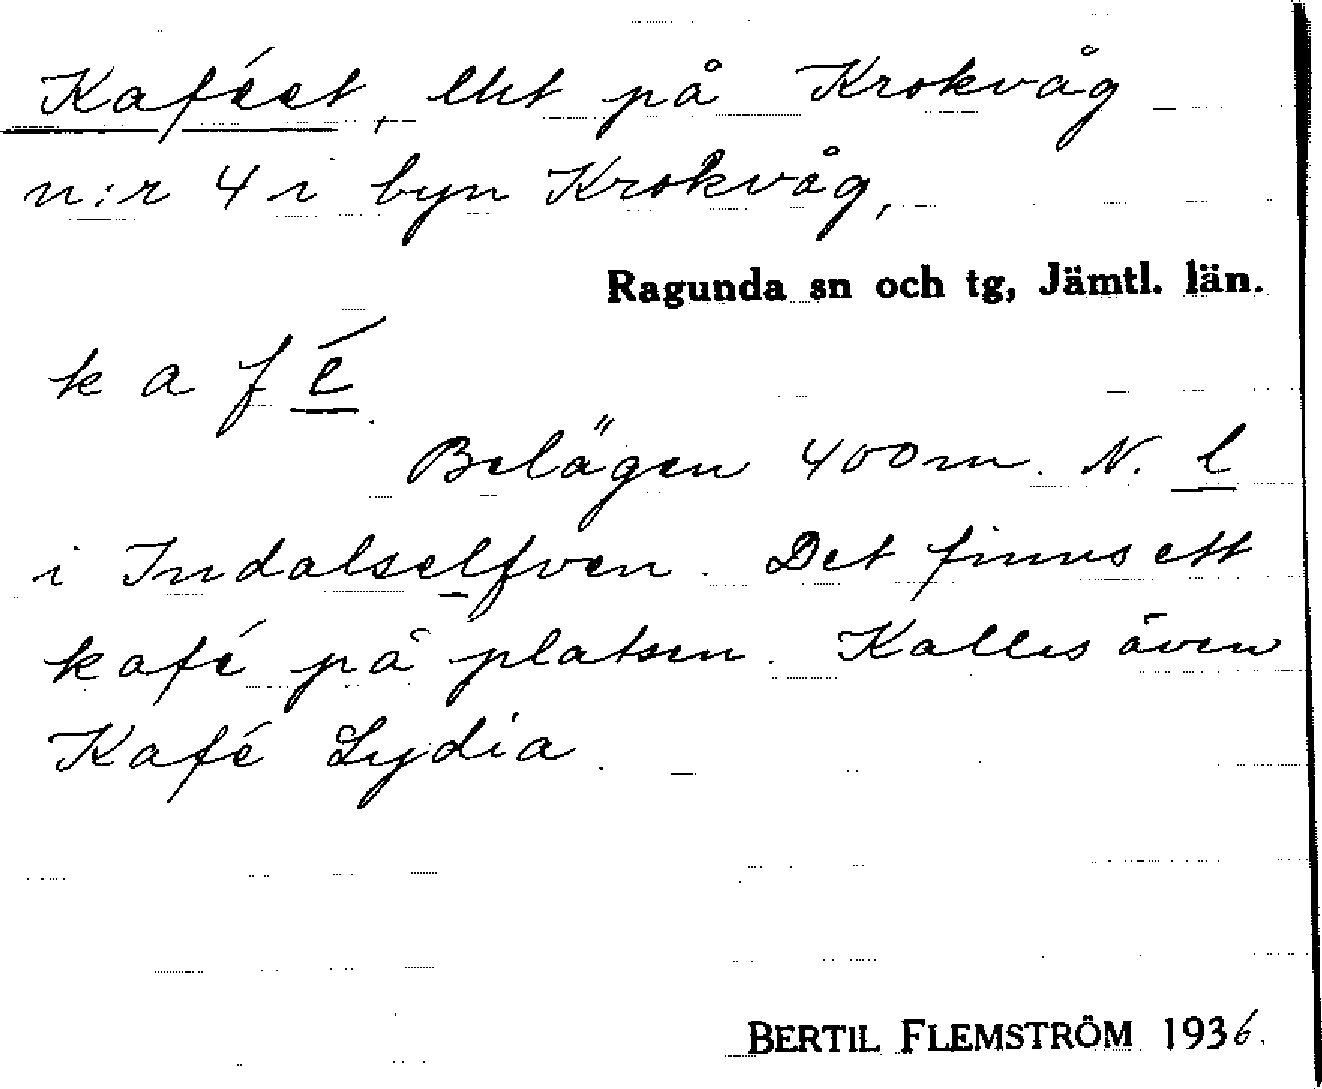 Kaféet, lht på Krokvåg
n:r 4 i byn Krokvåg,
Ragunda sn och tg, Jämtl. län.
k a f é
Belägen 400 m. N. l
i Indalselfven. Det finns ett
kafé på platsen. Kallas även
Kafé Lydia.
BERTIL FLEMSTRÖM 1936.